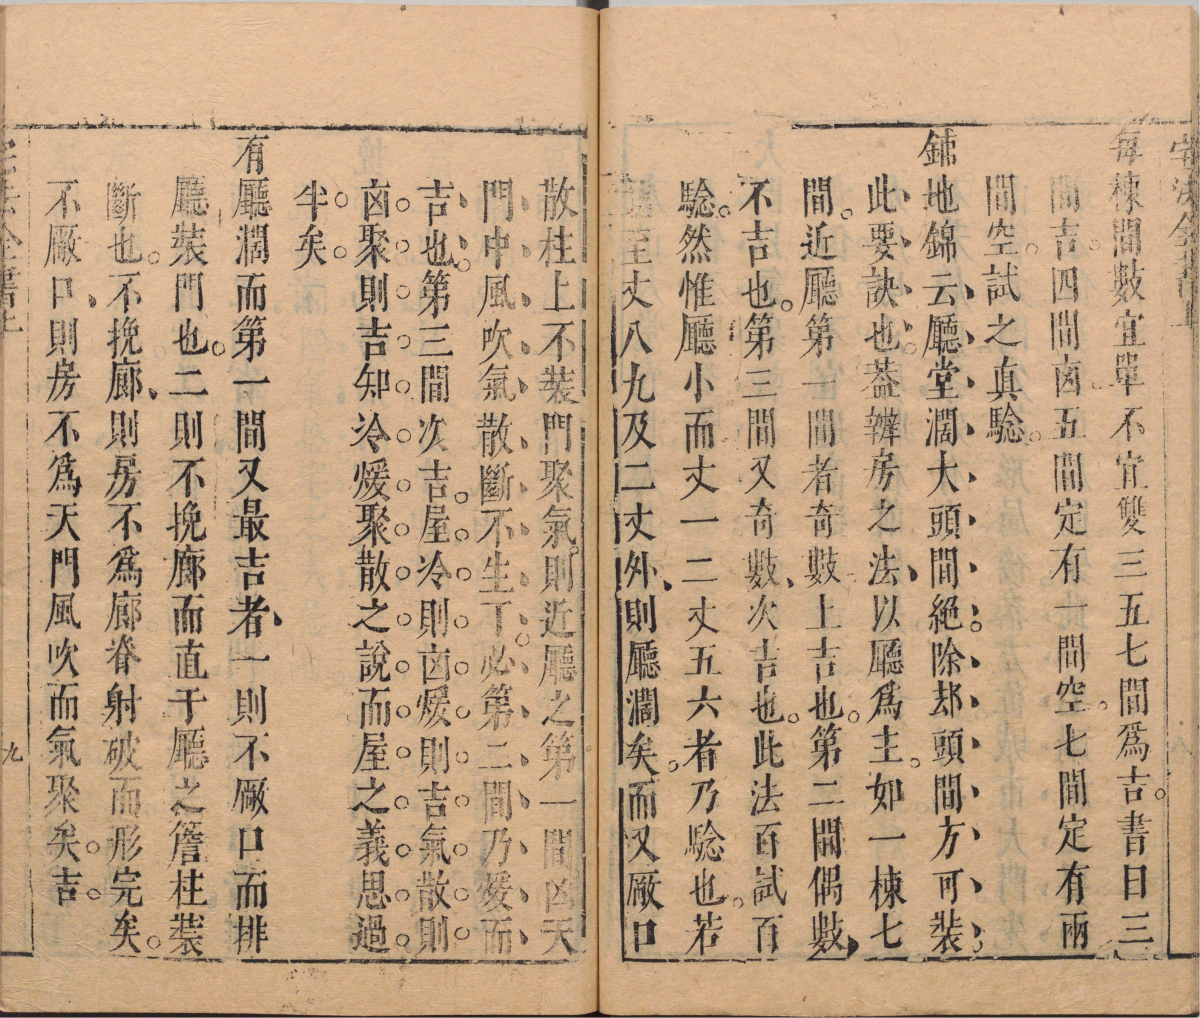 每棟間數宜單不宜雙三五七間爲吉書曰三
間吉四間凶五間定有一間空七間定有兩
間空試之真騐
鋪地錦云廳堂濶大頭間絕除却頭間方可裝
此要訣也葢辨房之法以廳爲主如一棟七
間近廳第一間者奇數上吉也第二間偶數
不吉也第三間又奇數次吉也此法百試百
騐然惟廳小而丈一二丈五六者乃騐也若
至丈八九及二丈外則廳濶矣而又厰口
散柱上不裝門聚氣則近廳之第一間凶天
門中風吹氣散斷不生丁必第二間乃煖而
吉也第三間次吉屋冷則凶煖則吉氣散則
凶聚則吉知冷煖聚散之說而屋之義思過
半矣
有廳濶而第一間又最吉者一則不厰口而排
廳裝門也二則不挽廊而直于廳之簷柱裝
斷也不挽廊則房不爲廊脊射破而形完矣
不厰口則房不爲天門風吹而氣聚矣吉
九